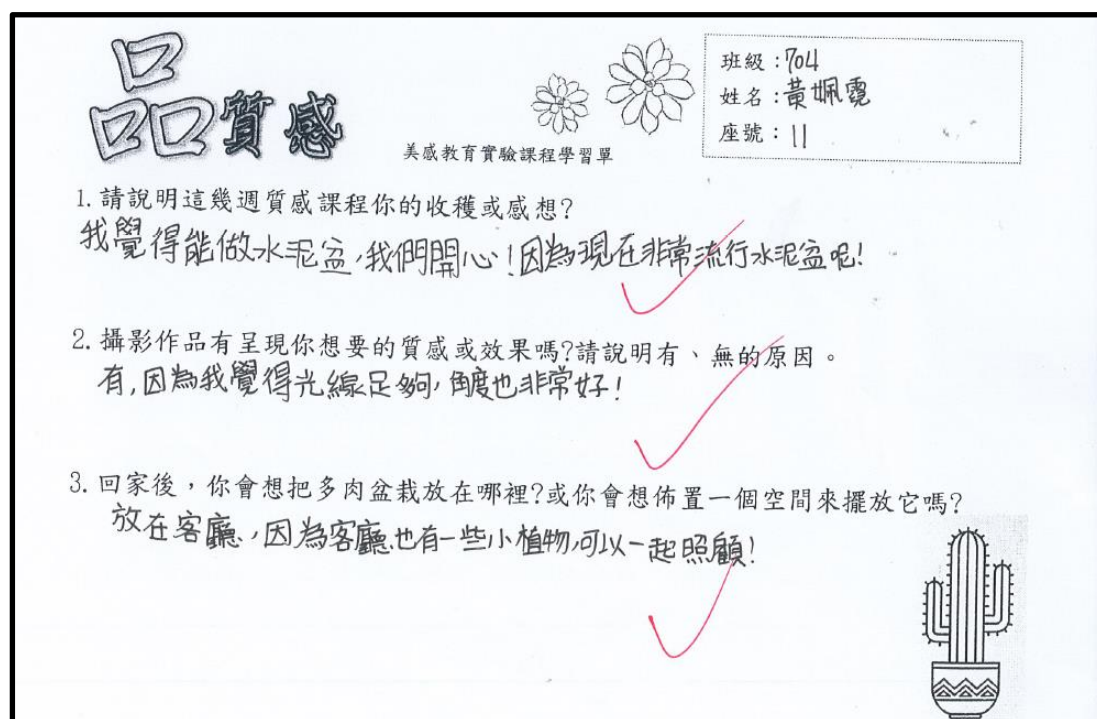 品質感
美感教育實驗課程學習單
班級：704
姓名：黃姵霓
座號：11
1. 請說明這幾週質感課程你的收穫或感想?
我覺得能做水泥盆，我們開心！因為現在非常流行水泥盆呢！
2. 攝影作品有呈現你想要的質感或效果嗎?請說明有、無的原因。
有，因為我覺得光線足夠，角度也非常好！
3. 回家後，你會想把多肉盆栽放在哪裡?或你會想佈置一個空間來擺放它嗎?
放在客廳，因為客廳也有一些小植物，可以一起照顧！